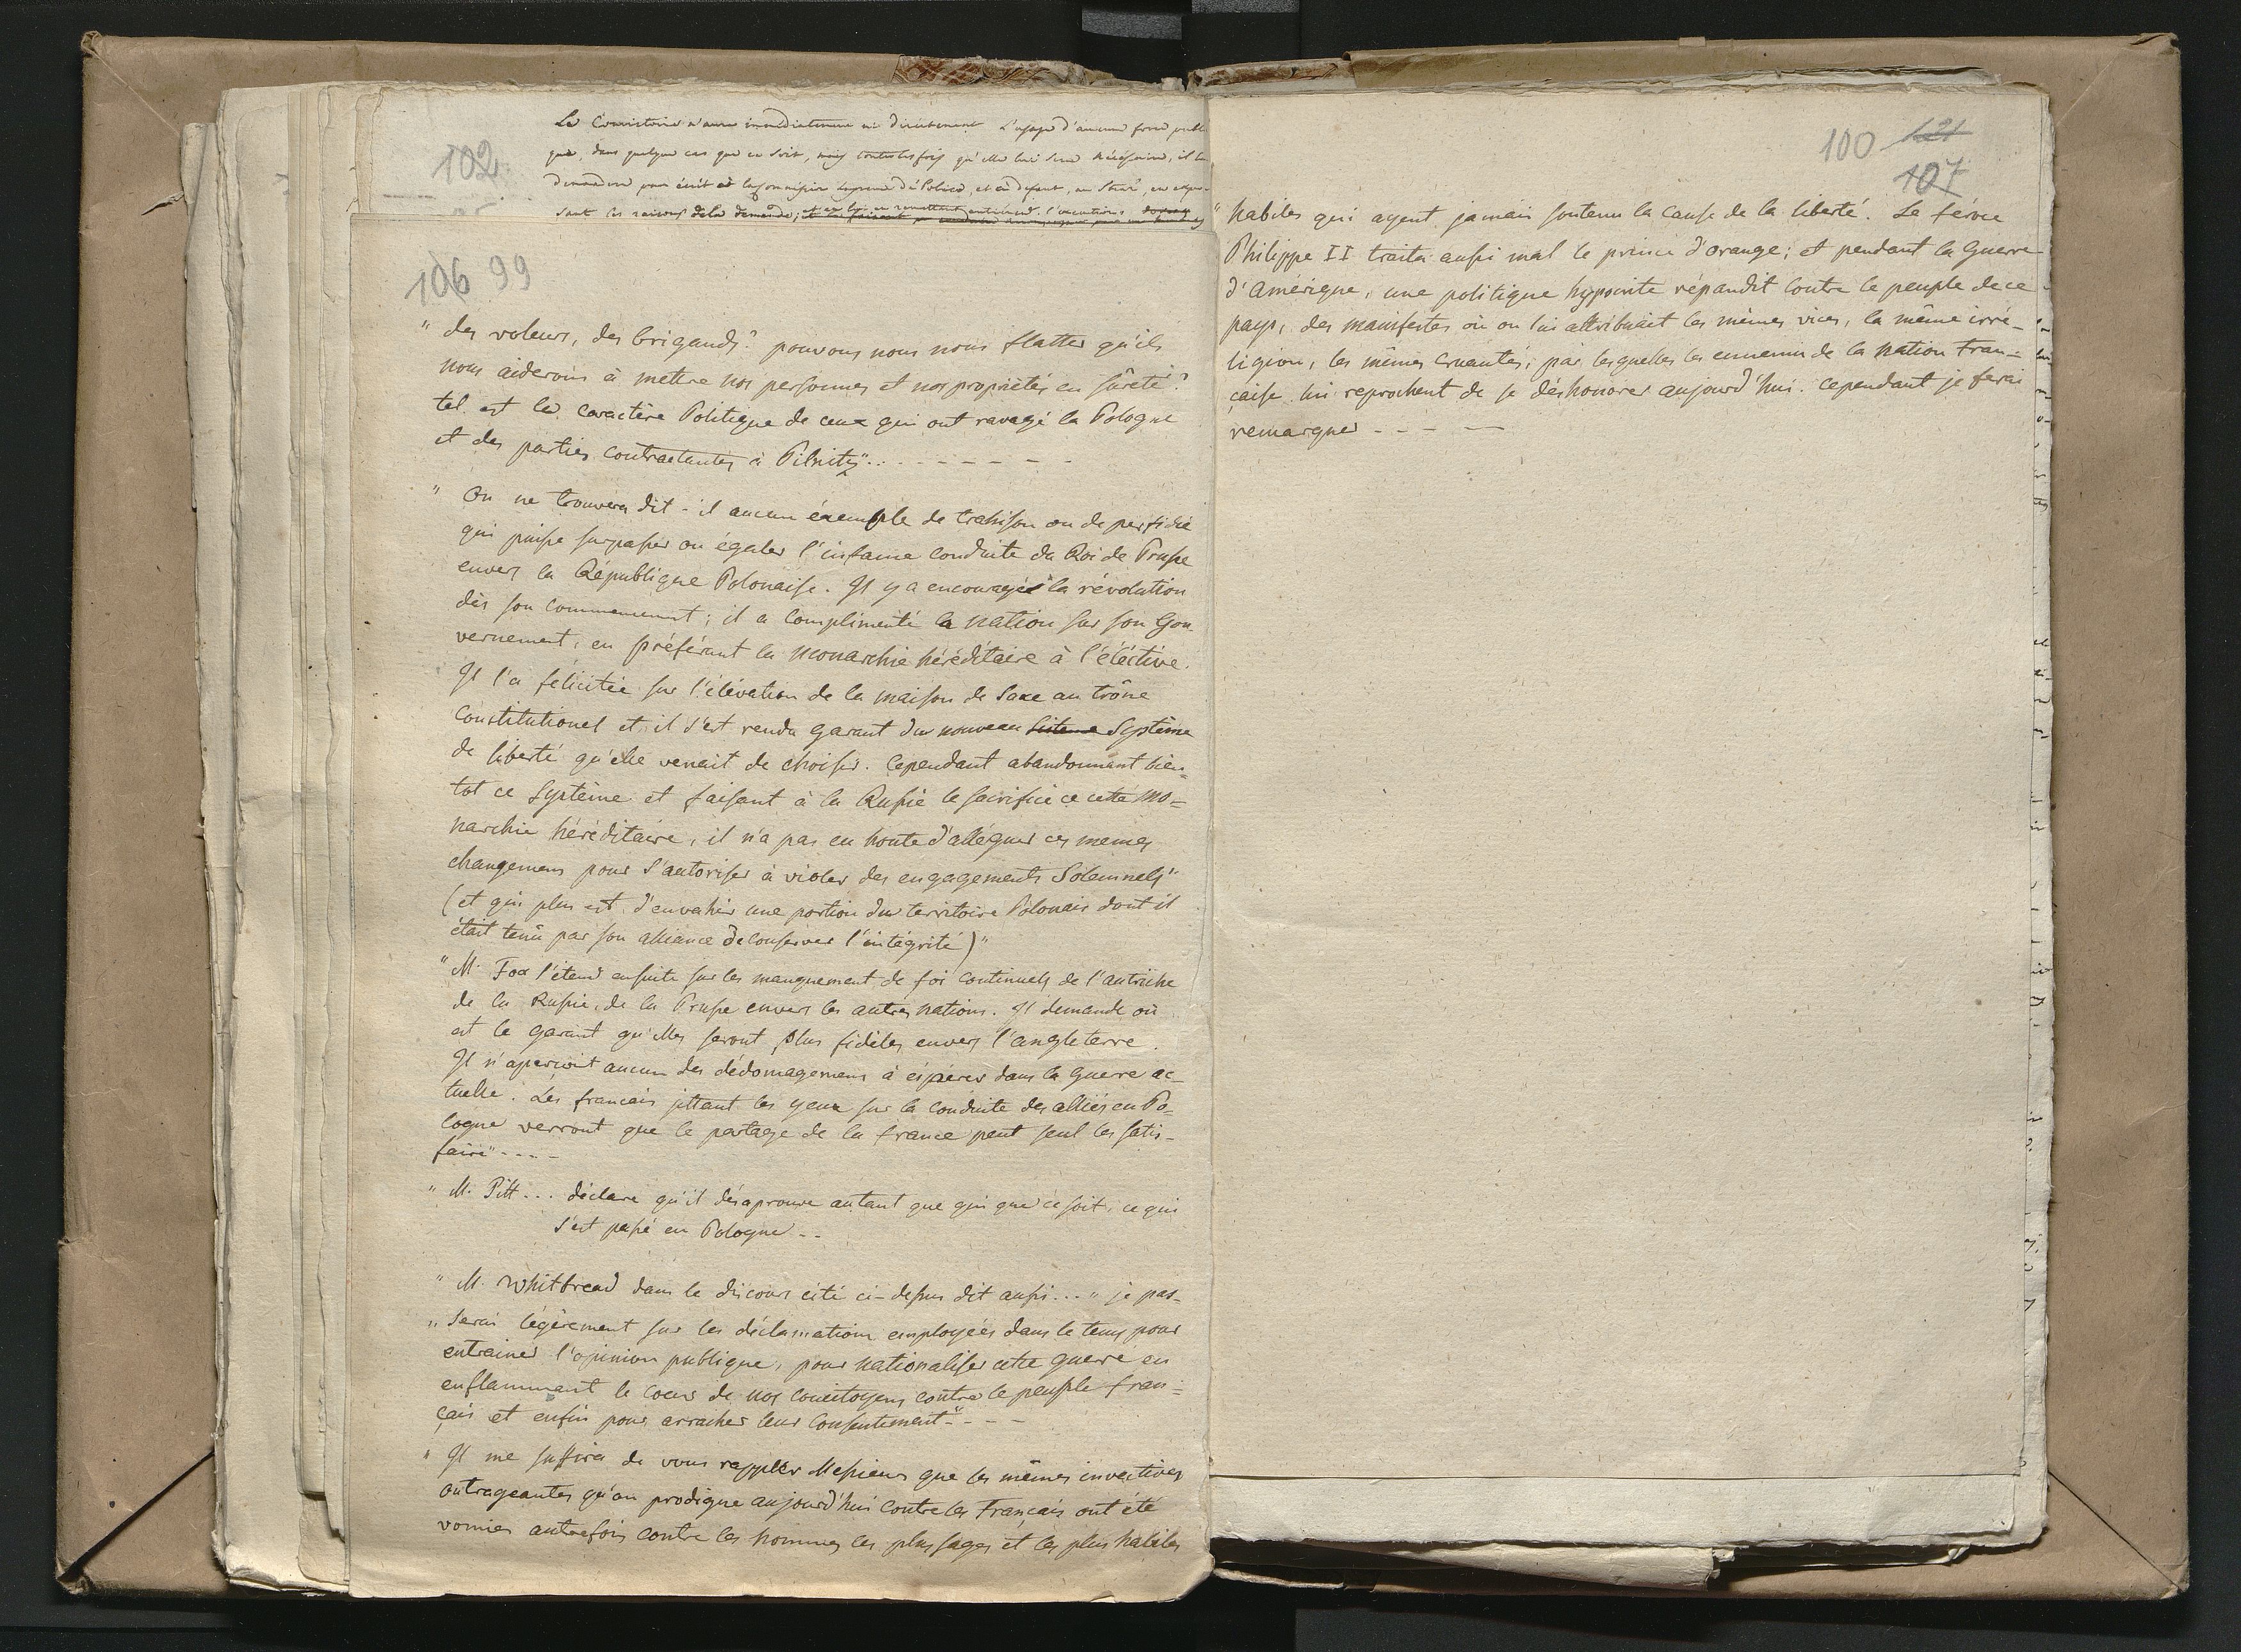 102
Le Consistoire n'aura immédiatement ni directement l'usage d'aucune force publi
que, dans quelque cas que ce soit, mais toutes les fois qu'elle lui sera nécessaire, il la
demandera par écrit à la Commission Suprême de Police, et à défaut, au Sénat, en expo-
sant les raisons de la demande;
106 99
" des voleurs, des brigands? pouvons nous nous flatter qu'ils
nous aiderons à mettre nos personnes et nos propriétés en sûreté?
tel est le caractère Politique de ceux qui ont ravagé la Pologne
et des parties contractantes à Pilnitz". - - - - - - -
" On ne trouvera dit-il aucun éxemple de trahison ou de perfidie
qui puisse surpasser ou égaler l'infame conduite du Roi de Prusse
envers la République Polonaise. Il y a encouragé la révolution
dès son commencement; il a complimenté la nation sur son Gou-
vernement, en préférant la monarchie héréditaire à l'éléctive.
Il l'a félicitée sur l'élévation de la maison de Saxe au trône
constitutionel et il s'est rendu garant du nouveau sisteme Système
de liberté qu'elle venait de choisir. Cependant abandonnant bien-
tot ce Système et faisant à la Russie le sacrifice ce cette mo=
narchie héréditaire, il n'a pas eu honte d'alléguer ces memes
changemens pour s'autoriser à violer des engagements Solemnels"
(et qui plus est, d'envahir une portion du territoire Polonais dont il
était tenû par son alliance de conserver l'intégrité)"
" M. Fox s'étend ensuite sur les manquement de foi continuels de l'autriche
de la Russie, de la Prusse envers les autres nations. Il demande où
est le garant qu'elles seront plus fidèles envers l'angleterre.
Il n'aperçoit aucun des dédomagemens à éspérer dans la guerre ac-
tuelle. Les francais jettant les yeux sur la conduite des alliés en Po-
logne verront que le partage de la france peut seul les satis-
faire" - - - -
" M. Pitt... déclare qu'il désaprouve autant que qui que ce soit, ce qui
s'est passé en Pologne - -
" M. Whitbread dans le discours cité ci-dessus dit aussi... " je pas-
" serai légèrement sur les déclamations employées dans le tems pour
entrainer l'opinion publique, pour nationaliser cette guerre en
enflammant le coeur de nos concitoyens contre le peuple fran=
çais et enfin pour arracher leur consentement" - - -
" Il me suffira de vous rappeler Messieurs que les mêmes invectives
outrageantes qu'on prodigue aujourd'hui contre les Français ont été
vomies autrefois contre les hommes les plus sages et les plus habiles
100 121
107
" habiles qui ayent jamais soutenu la cause de la liberté. Le féroce
Philippe II traita aussi mal le prince d'orange; et pendant la Guerre
d'amérique, une politique hypocrite répandit contre le peuple de ce
pays, des manifestes où on lui attribuait les mêmes vices, la même irré-
ligion, les mêmes cruautés, par lesquelles les ennemis de la nation Fran=
çaise lui reprochent de se déshonorer aujourd'hui. Cependant je ferai
remarquer - - - -